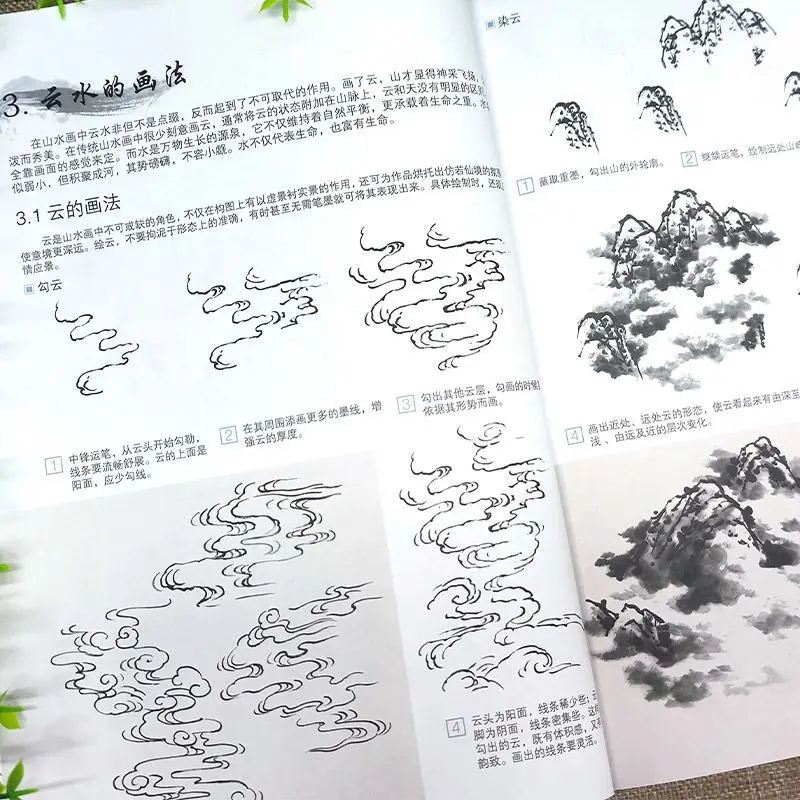 3. 云水的画法
在山水画中云水非但不是点缀，反而起到了不可取代的作用。画了云，山才显得神采飞扬，
泼而秀美。在传统山水画中很少刻意画云，通常将云的状态附加在山脉上，云和天没有明显的区别
全靠画面的感觉来定。而水是万物生长的源泉，它不仅维持着自然平衡，更承载着生命之重。水
似弱小，但积聚成河，其势磅礴，不容小觑。水不仅代表生命，也富有生命。
3.1 云的画法
云是山水画中不可或缺的角色，不仅在构图上有以虚景衬实景的作用，还可为作品烘托出仿若仙境的氛围
使意境更深远。绘云，不要拘泥于形态上的准确，有时甚至无需笔墨就可将其表现出来。具体绘制时，还须
情应景。
勾云
1 中锋运笔，从云头开始勾勒，
线条要流畅舒展。云的上面是
阳面，应少勾线。
2 在其周围添画更多的墨线，增
强云的厚度。
3 勾出其他云层，勾画的时候
依据其形势而画。
4 云头为阳面，线条稀少些；云
脚为阴面，线条密集些。这样
勾出的云，既有体积感，又有
韵致。画出的线条要灵活。
染云
1 蘸取重墨，勾出山的外轮廓。
2 继续运笔，绘制远处山峰
4 画出近处、远处云的形态，使云看起来有由深至
浅、由远及近的层次变化。